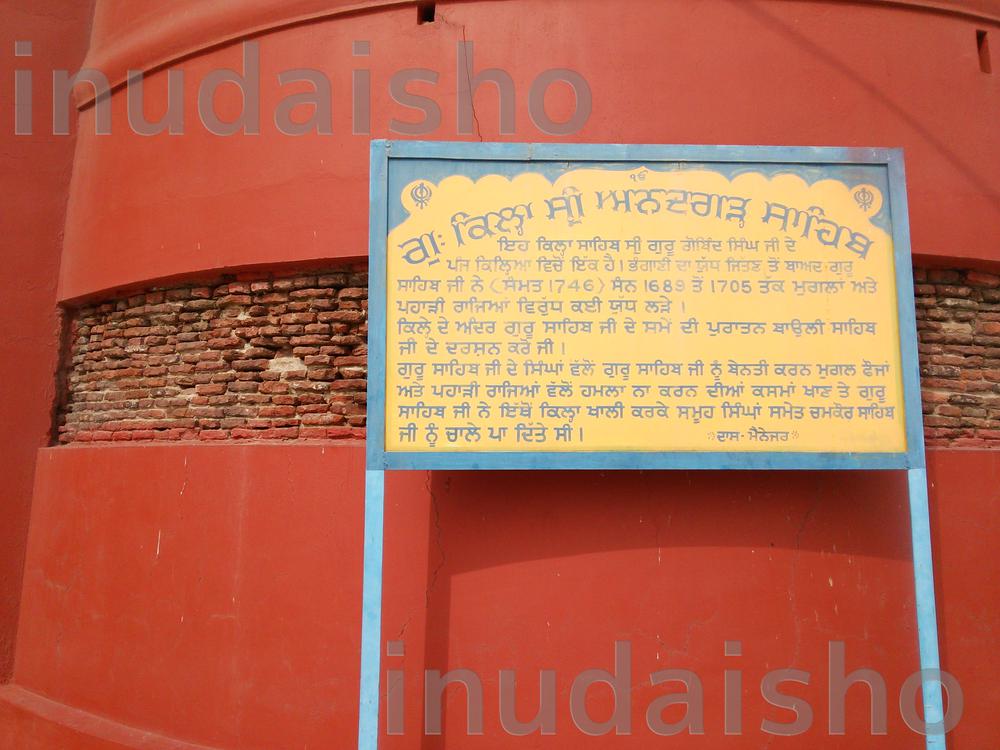 inudaisho
ੴ
ਗੁ: ਕਿਲ੍ਹਾ ਸ੍ਰੀ ਅਨੰਦਗੜ੍ਹ ਸਾਹਿਬ
ਇਹ ਕਿਲ੍ਹਾ ਸਾਹਿਬ ਸ੍ਰੀ ਗੁਰੂ ਗੋਬਿੰਦ ਸਿੰਘ ਜੀ ਦੇ
ਪੰਜ ਕਿਲ੍ਹਿਆਂ ਵਿਚੋਂ ਇੱਕ ਹੈ। ਭੰਗਾਣੀ ਦਾ ਯੁੱਧ ਜਿੱਤਣ ਤੋਂ ਬਾਅਦ ਗੁਰੂ
ਸਾਹਿਬ ਜੀ ਨੇ (ਸੰਮਤ 1746) ਸੰਨ 1689 ਤੋਂ 1705 ਤੱਕ ਮੁਗਲਾਂ ਅਤੇ
ਪਹਾੜੀ ਰਾਜਿਆਂ ਵਿਰੁੱਧ ਕਈ ਯੁੱਧ ਲੜੇ।
ਕਿਲ੍ਹੇ ਦੇ ਅੰਦਰ ਗੁਰੂ ਸਾਹਿਬ ਜੀ ਦੇ ਸਮੇਂ ਦੀ ਪੁਰਾਤਨ ਬਾਉਲੀ ਸਾਹਿਬ
ਜੀ ਦੇ ਦਰਸ਼ਨ ਕਰੋ ਜੀ।
ਗੁਰੂ ਸਾਹਿਬ ਜੀ ਦੇ ਸਿੰਘਾਂ ਵੱਲੋਂ ਗੁਰੂ ਸਾਹਿਬ ਜੀ ਨੂੰ ਬੇਨਤੀ ਕਰਨ ਮੁਗਲ ਫੌਜਾਂ
ਅਤੇ ਪਹਾੜੀ ਰਾਜਿਆਂ ਵੱਲੋਂ ਹਮਲਾ ਨਾ ਕਰਨ ਦੀਆਂ ਕਸਮਾਂ ਖਾਣ ਤੇ ਗੁਰੂ
ਸਾਹਿਬ ਜੀ ਨੇ ਇੱਥੋਂ ਕਿਲ੍ਹਾ ਖਾਲੀ ਕਰਕੇ ਸਮੂਹ ਸਿੰਘਾਂ ਸਮੇਤ ਚਮਕੌਰ ਸਾਹਿਬ
ਜੀ ਨੂੰ ਚਾਲੇ ਪਾ ਦਿੱਤੇ ਸੀ।
ਦਾਸ- ਮੈਨੇਜਰ
inudaisho